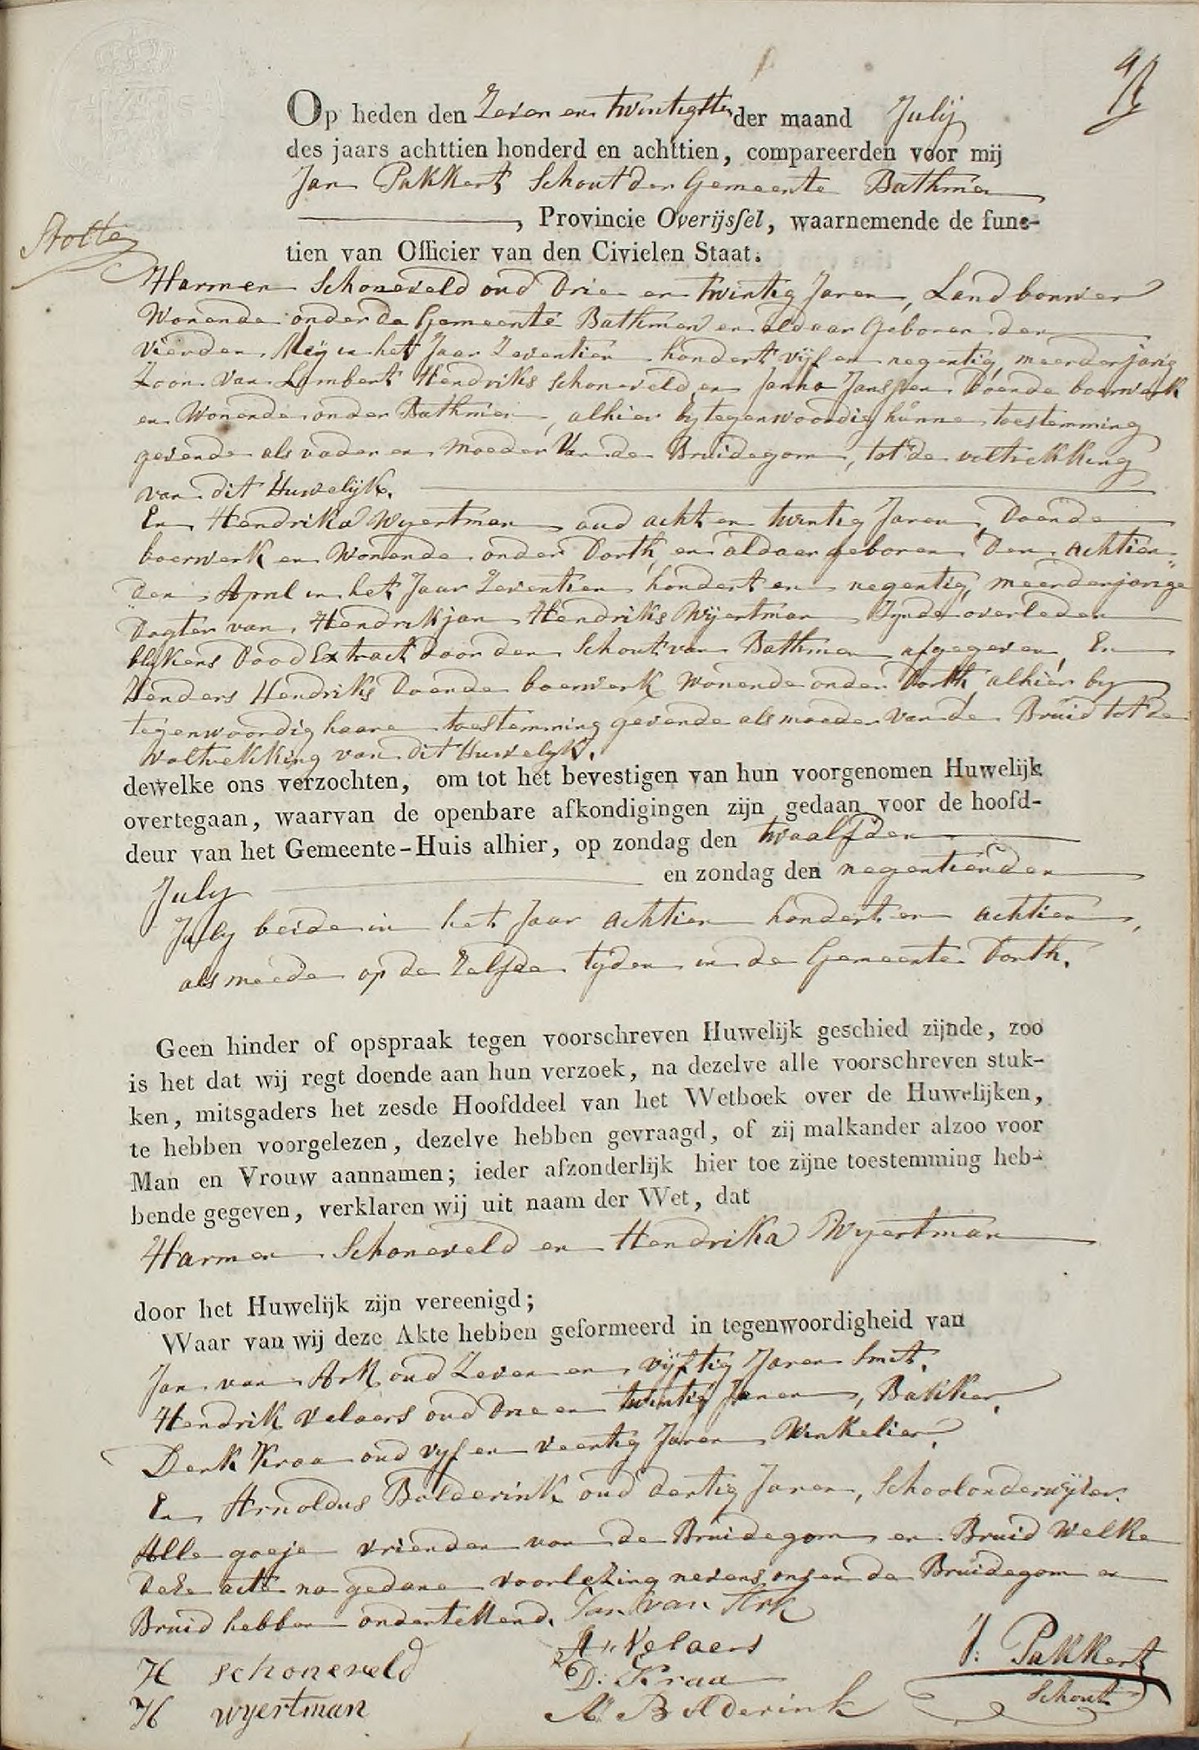 Op heden den Zeven en twintigsten der maand Julij
des jaars achttien honderd en achttien, compareerden voor mij
Jan Pakkert Schout der Gemeente Bathmen
, Provincie Overijssel, waarnemende de func-
tien van Officier van den Civielen Staat.
Stolte
Harmen Schoneveld oud Drie en twintig Jaren, Landbouwer
Wonende onder de Gemeente Bathmen en aldaar Geboren den
vierden Meij in het Jaar Zeventien hondert vijf en negentig, meerderjarig
Zoon van Lambert Hendriks Schoneveld en Janna Janssen Doende boerwerk
en Wonende onder Bathmen, alhier bytegenwoordig hunne toestemming
gevende als vader en Moeder Van de Bruidegom, tot de voltrekking
van dit Huwelijk.
En Hendrika Wyertman oud acht en twintig Jaren, Doende
boerwerk en Wonende onder Dorth, en aldaar geboren Den achtien-
den April in het Jaar Zeventien hondert en negentig, meerderjarige
Dogter van Hendrikjan Hendriks Wyertman Zynde overleden
blykens Dood Extract door den Schout van Bathmen afgegeven, En
Henders Hendriks Doende boerwerk Wonende onder Dorth, alhier by
tegenwoordig haare toestemming gevende als moeder van de Bruid tot de
Voltrekking van dit Huwelyk.
dewelke ons verzochten, om tot het bevestigen van hun voorgenomen Huwelijk
overtegaan, waarvan de openbare afkondigingen zijn gedaan voor de hoofd-
deur van het Gemeente-Huis alhier, op zondag den twaalfden
July en zondag den negentienden
July beide in het Jaar achtien hondert en achtien,
als meede op de Zelfde tyden in de Gemeente Dorth.
Geen hinder of opspraak tegen voorschreven Huwelijk geschied zijnde, zoo
is het dat wij regt doende aan hun verzoek, na dezelve alle voorschreven stuk-
ken, mitsgaders het zesde Hoofddeel van het Wetboek over de Huwelijken,
te hebben voorgelezen, dezelve hebben gevraagd, of zij malkander alzoo voor
Man en Vrouw aannamen; ieder afzonderlijk hier toe zijne toestemming heb-
bende gegeven, verklaren wij uit naam der Wet, dat
Harmen Schoneveld en Hendrika Wyertman
door het Huwelijk zijn vereenigd;
Waar van wij deze Akte hebben geformeerd in tegenwoordigheid van
Jan van Ark oud Zeven en vijftig Jaren Smit.
Hendrik Velaers oud Drie en twintig Jaren, Bakker.
Derk Kraa oud vyf en veertig Jaren Winkelier.
En Arnoldus Bolderink oud dertig Jaren, Schoolonderwyser.
Alle goeje vrienden van de Bruidegom en Bruid Welke
Deze acte na gedane voorlezing nevens ons en de Bruidegom en
Bruid hebben ondertekend. Jan van Ark
H Schoneveld
H wyertman
H: Velaers
D: Kraa
A: Bolderink
J: Pakkert
Schout